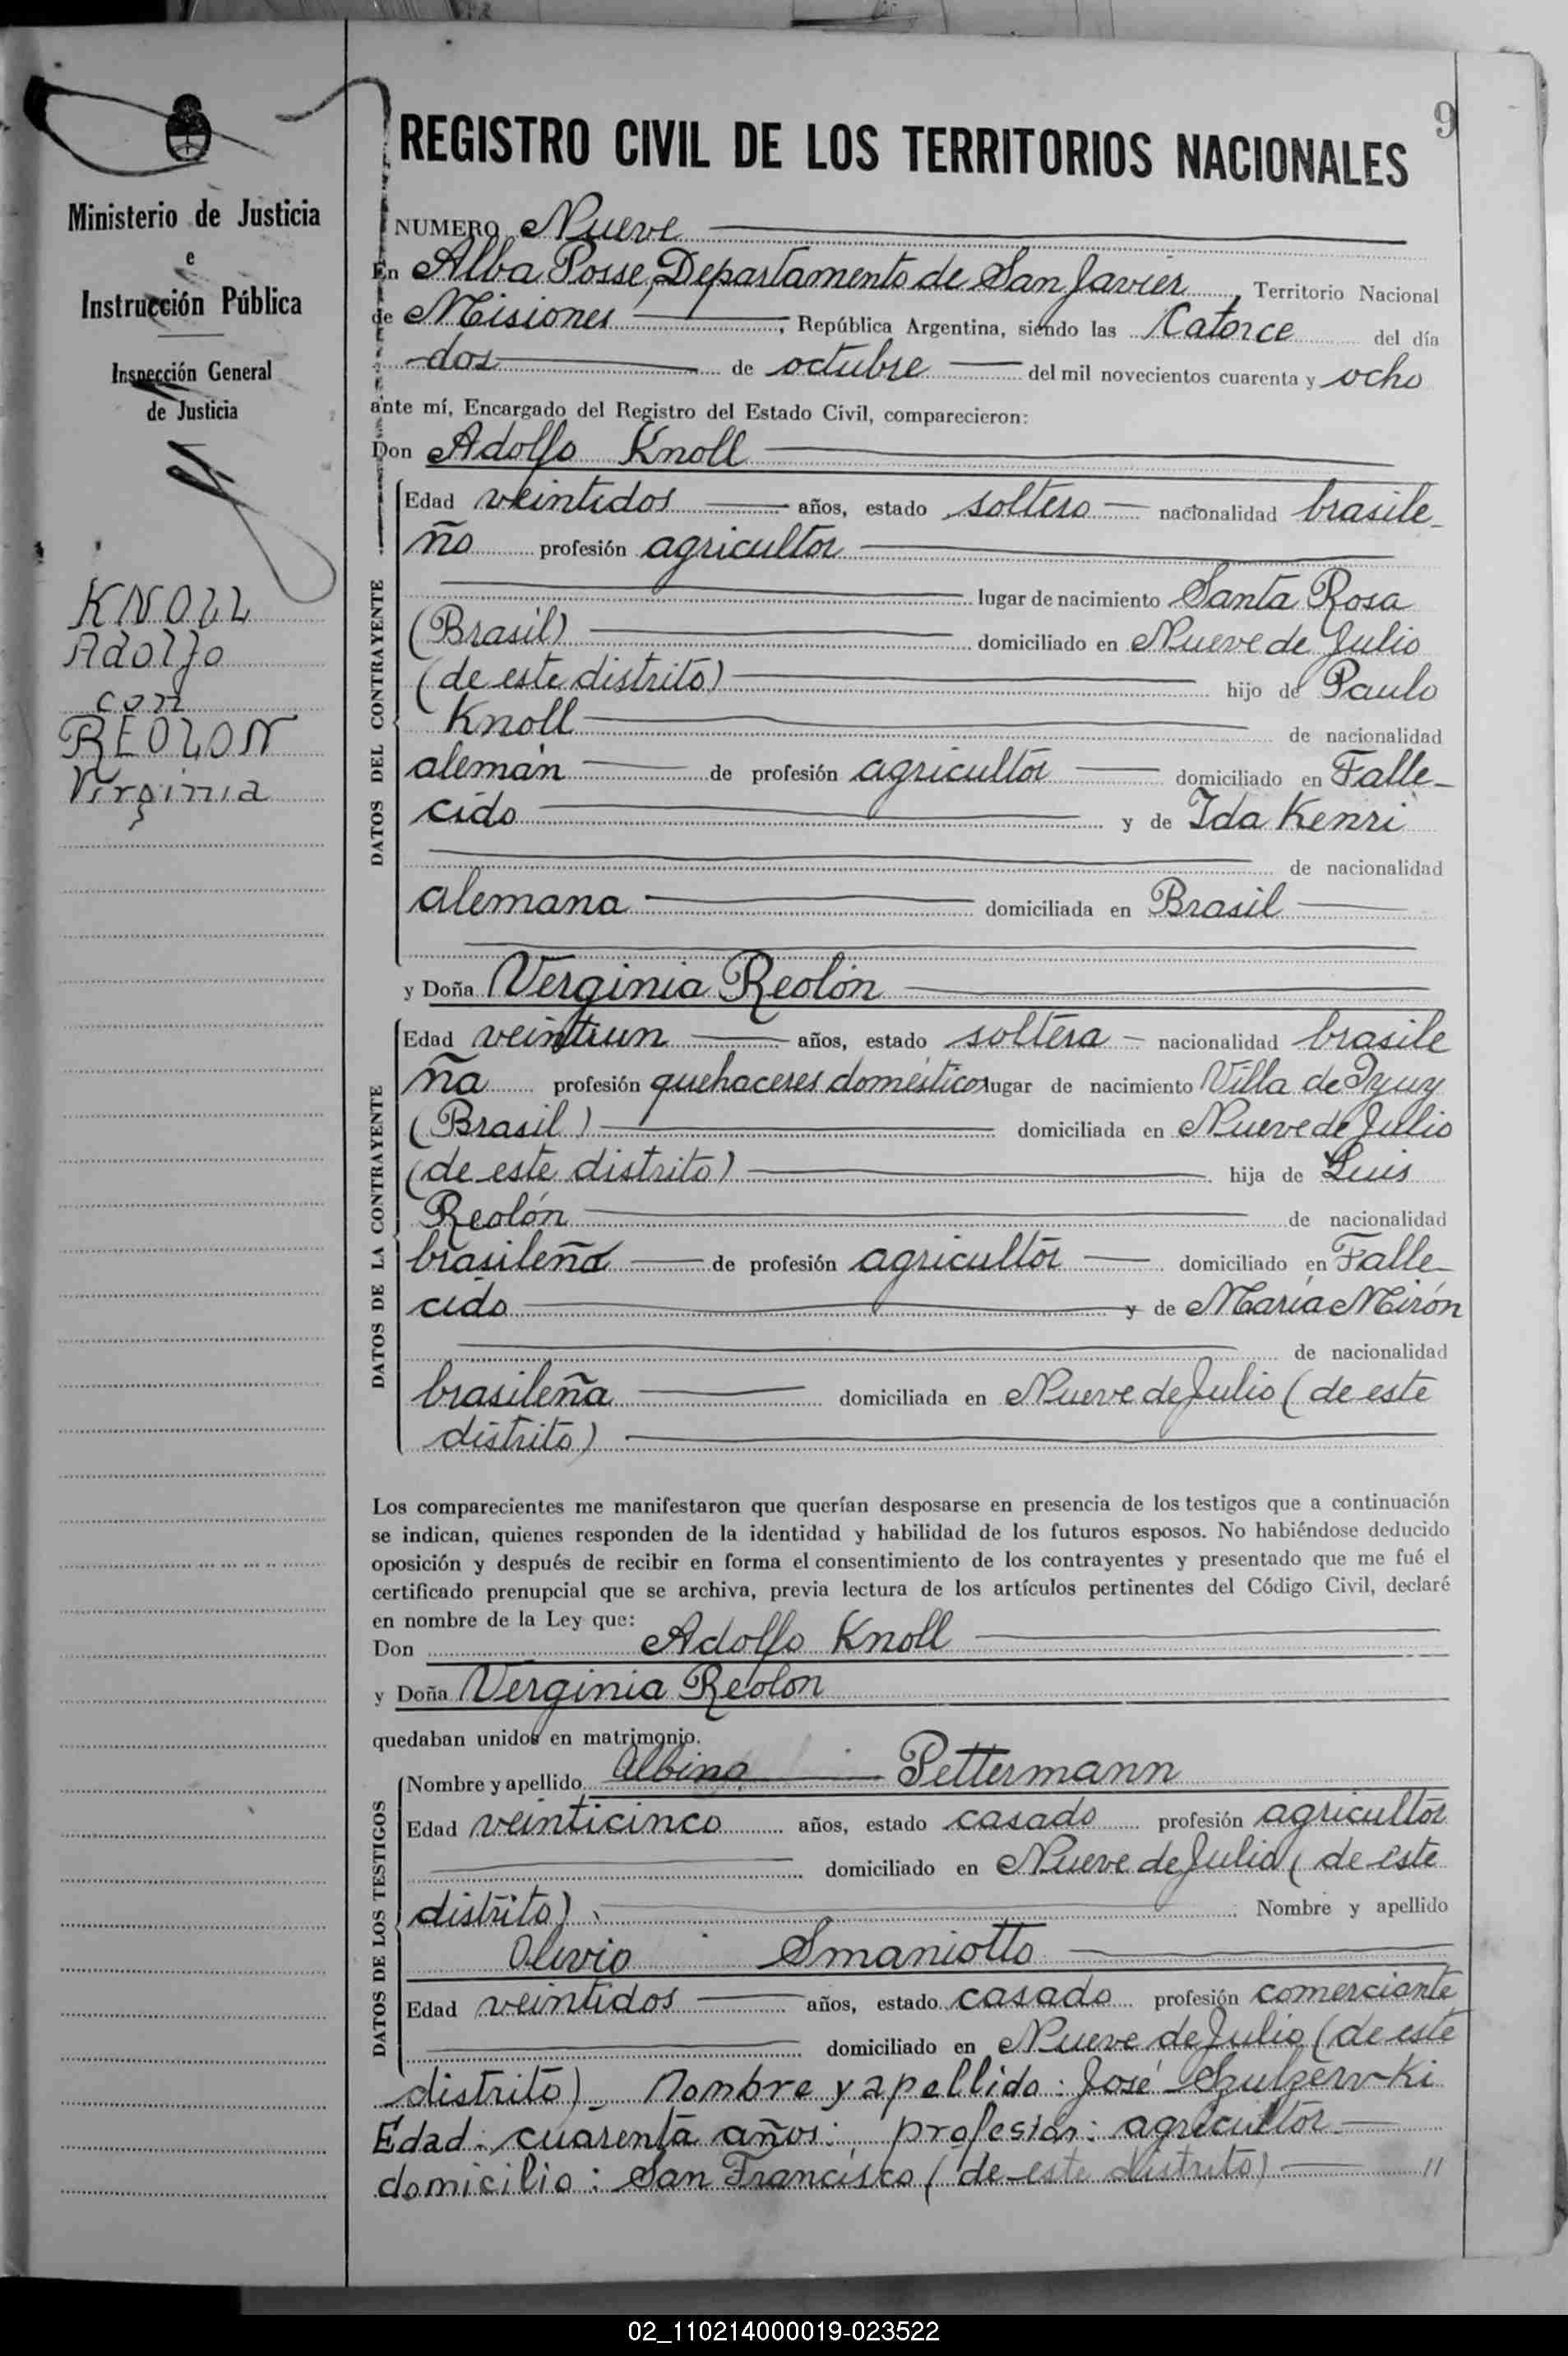 9
REGISTRO CIVIL DE LOS TERRITORIOS NACIONALES
Ministerio de Justicia
e
Instrucción Pública
Inspección General
de Justicia
KNOLL
Adolfo
con
REOLON
Virginia
NUMERO Nueve
En Alba Posse, Departamento de San Javier, Territorio Nacional
de Misiones, República Argentina, siendo las Catorce del día
dos de octubre del mil novecientos cuarenta y ocho
ante mí, Encargado del Registro del Estado Civil, comparecieron:
Don Adolfo Knoll
DATOS DEL CONTRAYENTE
Edad veintidos años, estado soltero nacionalidad brasile-
ño profesión agricultor
lugar de nacimiento Santa Rosa
(Brasil) domiciliado en Nueve de Julio
(de este distrito) hijo de Paulo
Knoll de nacionalidad
alemán de profesión agricultor domiciliado en Falle-
cido y de Ida Kenri
de nacionalidad
alemana domiciliada en Brasil
y Doña Verginia Reolón
DATOS DE LA CONTRAYENTE
Edad veintiun años, estado soltera nacionalidad brasile
ña profesión quehaceres domésticos lugar de nacimiento Villa de Iyuy
(Brasil) domiciliada en Nueve de Julio
(de este distrito) hija de Luis
Reolón de nacionalidad
brasileña de profesión agricultor domiciliado en Falle-
cido y de María Mirón
de nacionalidad
brasileña domiciliada en Nueve de Julio (de este
distrito)
Los comparecientes me manifestaron que querían desposarse en presencia de los testigos que a continuación
se indican, quienes responden de la identidad y habilidad de los futuros esposos. No habiéndose deducido
oposición y después de recibir en forma el consentimiento de los contrayentes y presentado que me fué el
certificado prenupcial que se archiva, previa lectura de los artículos pertinentes del Código Civil, declaré
en nombre de la Ley que:
Don Adolfo Knoll
y Doña Verginia Reolón
quedaban unidos en matrimonio.
DATOS DE LOS TESTIGOS
Nombre y apellido Albino Pettermann
Edad veinticinco años, estado casado profesión agricultor
domiciliado en Nueve de Julio (de este
distrito) Nombre y apellido
Olivio Smaniotto
Edad veintidos años, estado casado profesión comerciante
domiciliado en Nueve de Julio (de este
distrito) Nombre y apellido: José
Edad: cuarenta años: profesión: agricultor
domicilio: San Francisco (de este distrito) //
02_110214000019-023522